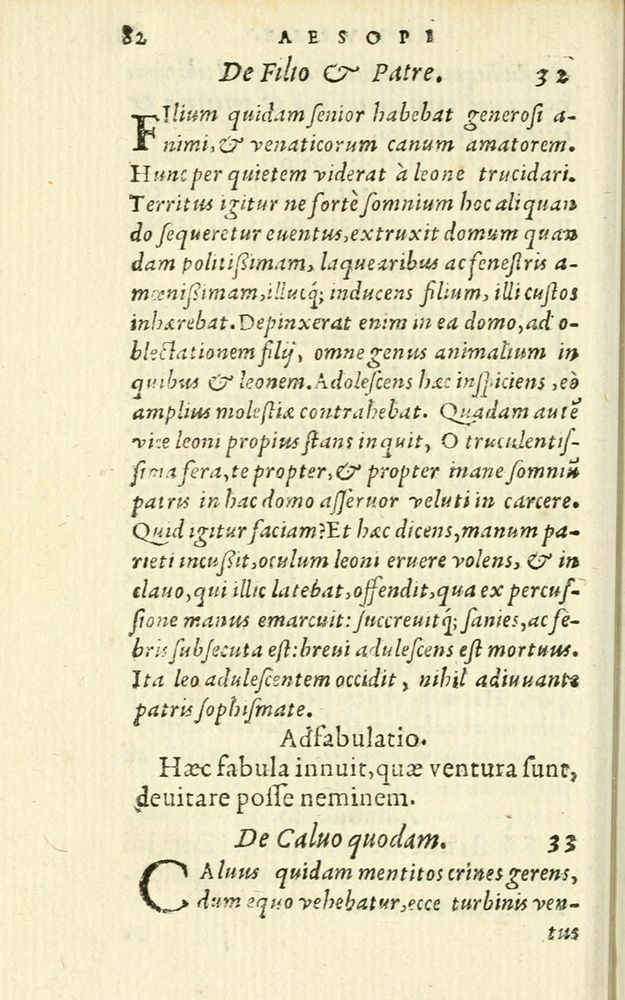 82 AESOPI
De Filio & Patre. 32
FIlium quidam ſenior habebat generoſi a-
nimi, & venaticorum canum amatorem.
Hunc per quietem viderat à leone trucidari.
Territus igitur ne fortè ſomnium hoc aliquan
do ſequeretur euentus, extruxit domum quan
dam politißimam, laquearibus ac feneſtris a-
mœnißimam, illucq́; inducens filium, illi cuſtos
inhærebat. Depinxerat enim in ea domo, ad o-
blectationem filij, omne genus animalium in
quibus & leonem. Adoleſcens hæc inſpiciens, eò
amplius moleſtiæ contrahebat. Quadam autẽ
vice leoni propius ſtans inquit, O truculentiſ-
ſima fera, te propter, & propter inane ſomniũ
patris in hac domo aſſeruor veluti in carcere.
Quid igitur faciam? Et hæc dicens, manum pa-
rieti incußit, oculum leoni eruere volens, & in
clauo, qui illic latebat, offendit, qua ex percuſ-
ſione manus emarcuit: ſuccreuitq́; ſanies, ac fe-
bris ſubſecuta eſt: breui aduleſcens eſt mortuus.
Ita leo aduleſcentem occidit, nihil adiuuante
patris ſophiſmate.
Adfabulatio.
Hæc fabula innuit, quæ ventura ſunt,
deuitare poſſe neminem.
De Caluo quodam. 33
CAluus quidam mentitos crines gerens,
dum equo vehebatur, ecce turbinis ven-
tus